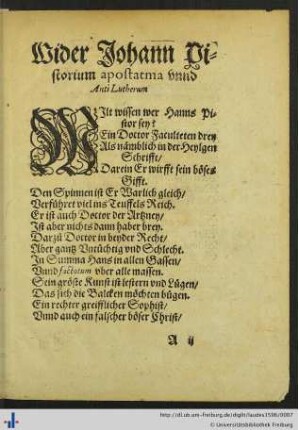 Wider Johann Pi-
storium apostatma vnnd
Anti Lutherum
WIlt wissen wer Hanns Pi
stor sey?
Ein Doctor Faculteten drey
Als nämblich in der Heylgen
Schrifft/
Darein Er wirfft sein böses
Gifft.
Den Spinnen ist Er Warlich gleich/
Verführet viel ins Teuffels Reich.
Er ist auch Doctor der Artzney/
Ist aber nichts dann haber brey.
Darzů Doctor in beyder Recht/
Aber gantz Vntüchtig vnd Schlecht.
In Summa Hans in allen Gassen/
Vnnd factotum vber alle massen.
Sein gröste Kunst ist lestern vnd Lügen/
Das sich die Balcken möchten bügen.
Ein rechter greifflicher Sophist/
Vnnd auch ein falscher böser Christ/
A ij
http://dl.ub.uni-freiburg.de/diglit/laudes1596/0007
© Universitätsbibliothek Freiburg